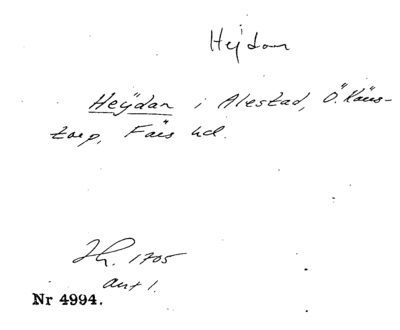 Hejdan
Heÿdan i Alestad, Ö. Kärs-
torp, Färs hd.
Jh. 1705
ant 1.
Nr 4994.